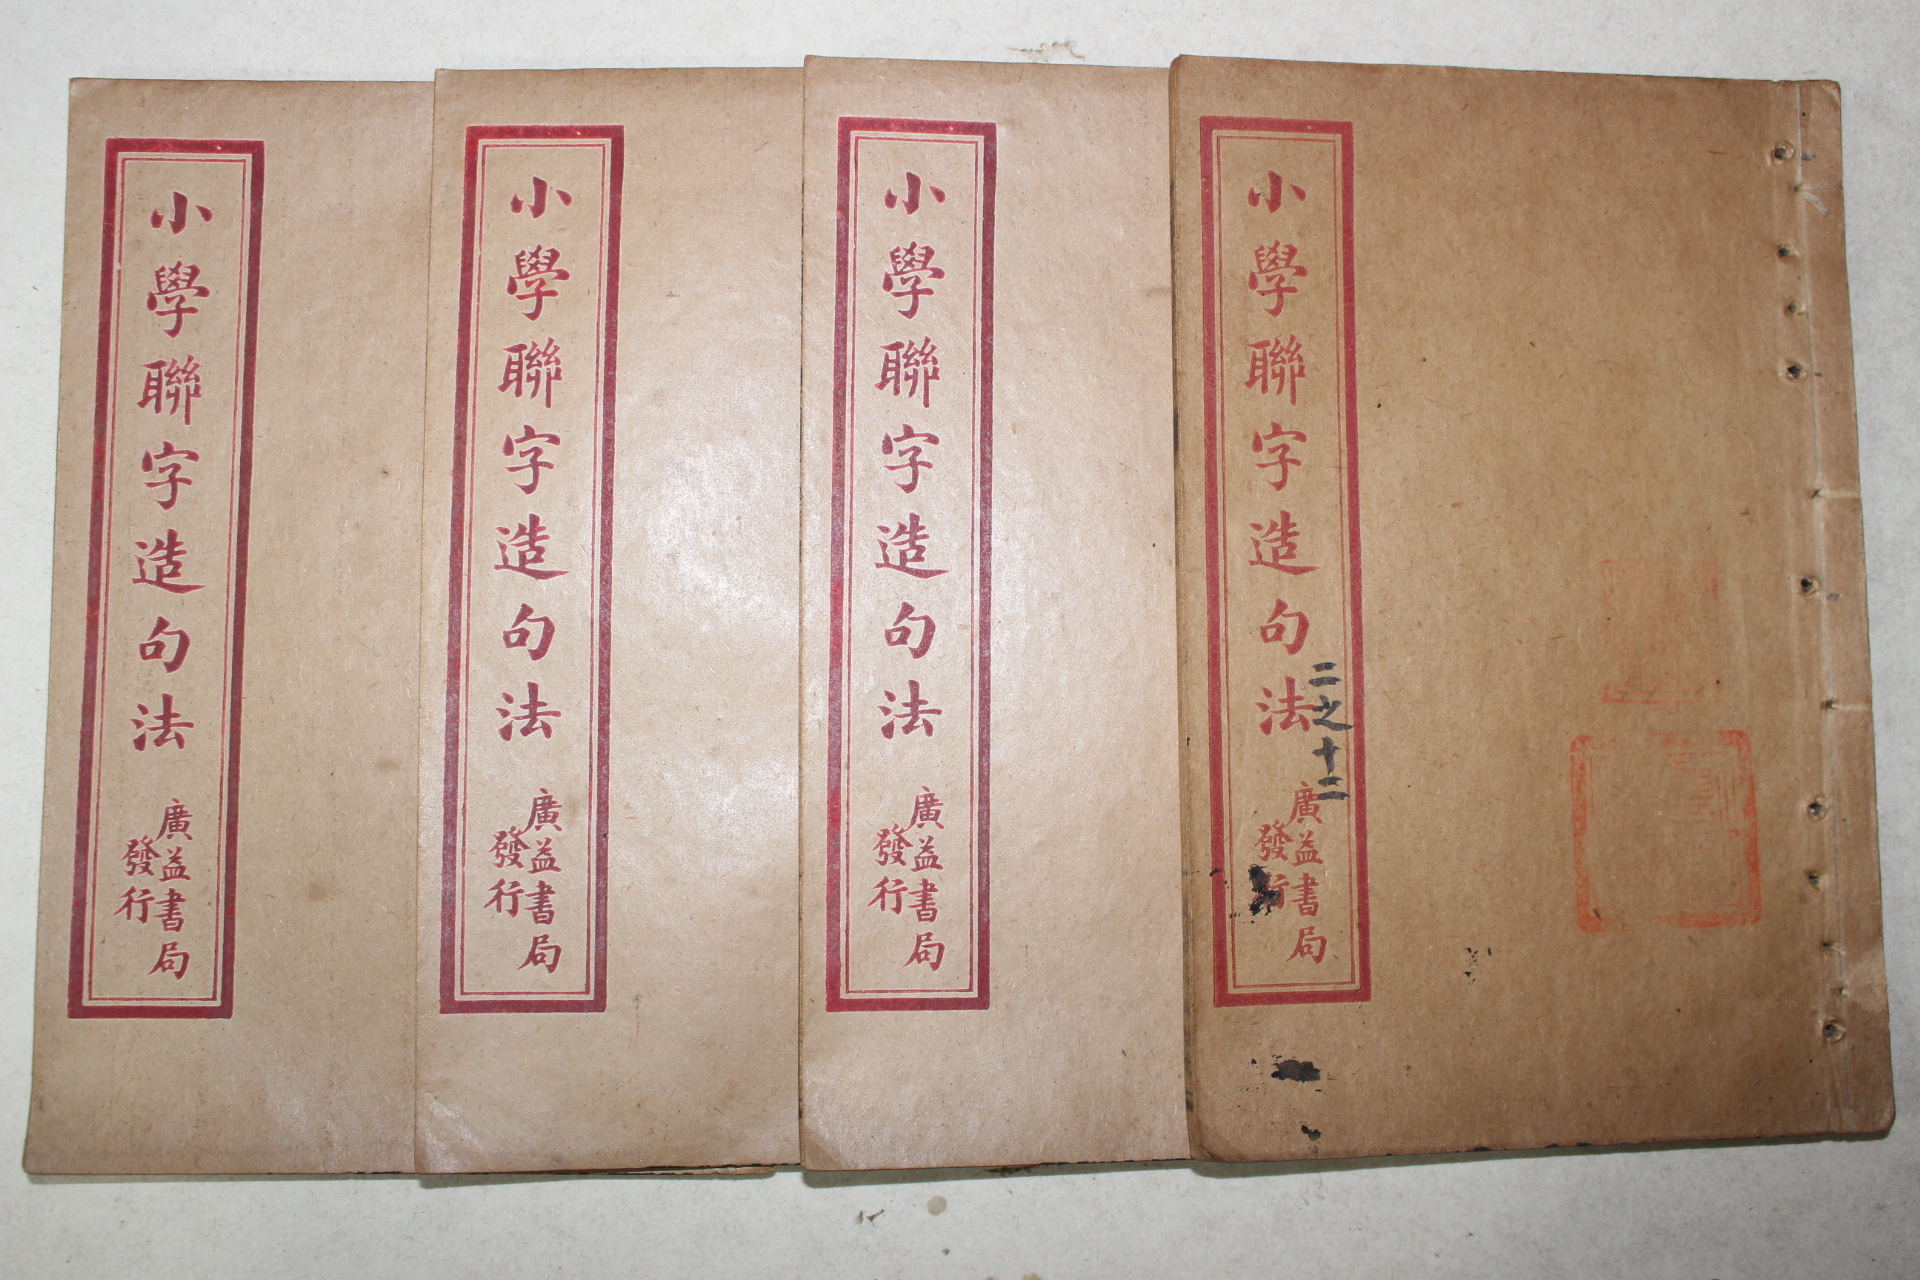 小學聯字造句法
廣益書局
發行
小學聯字造句法
廣益書局
發行
小學聯字造句法
廣益書局
發行
小學聯字造句法
二之十二
廣益書局
發行